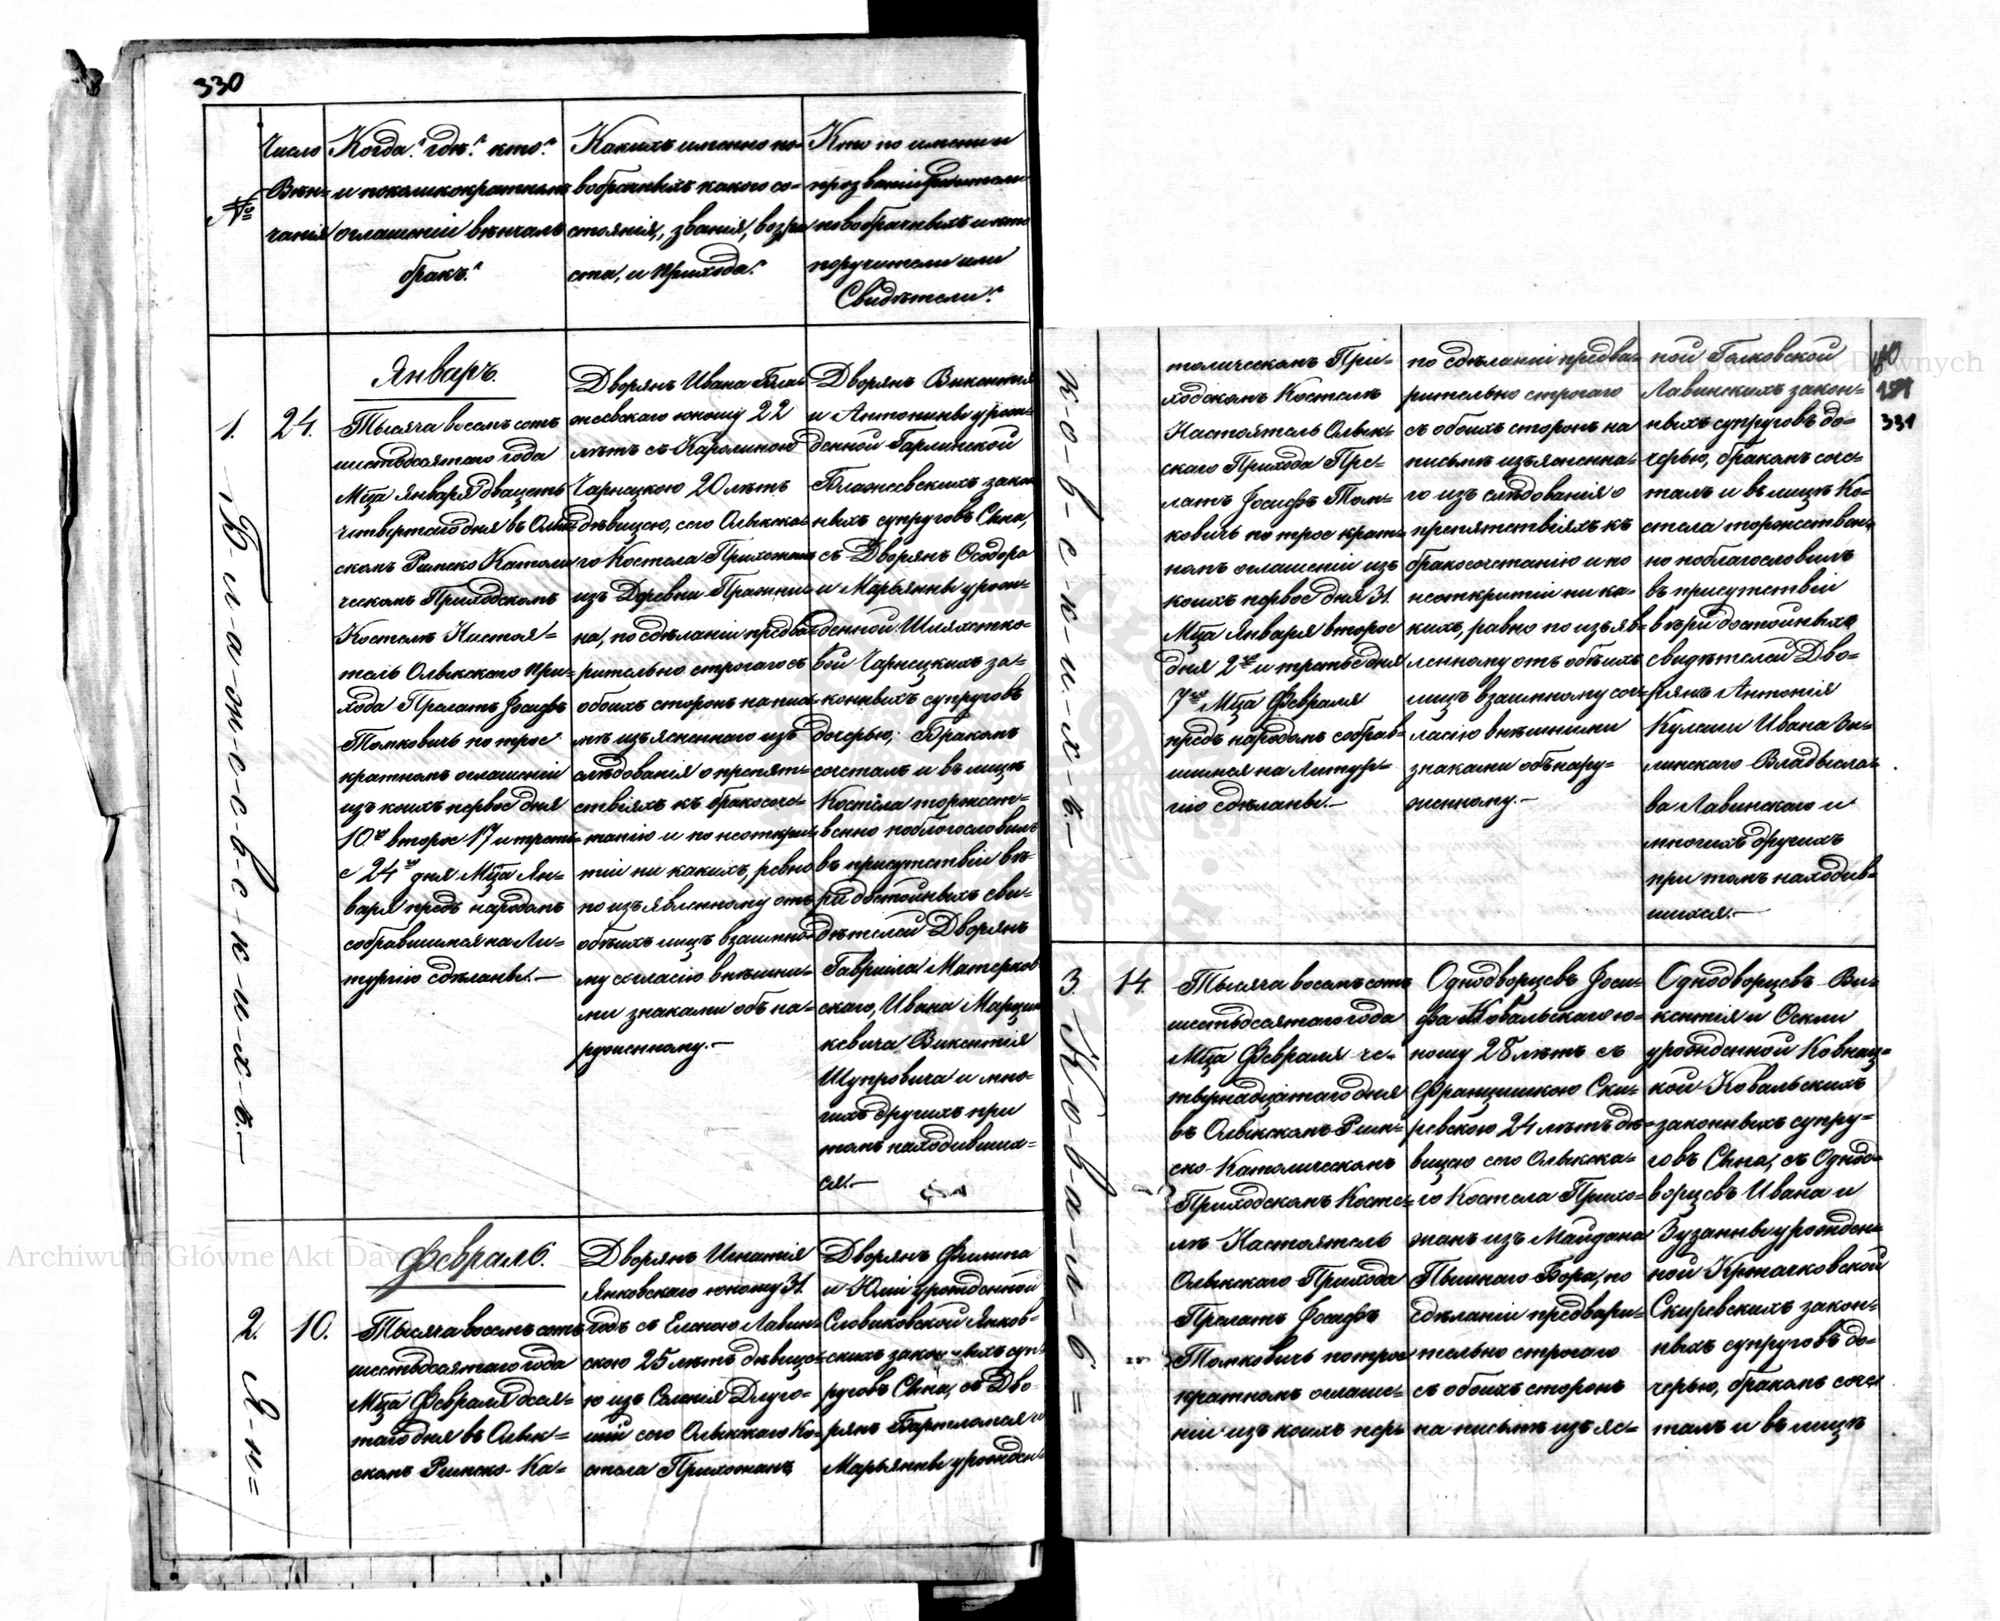 330
№
Число
Вѣн-
чанія
Когда? гдѣ? кто?
и поколикократномъ
оглашеніи вѣнчалъ
бракъ?
Какихъ именно но-
вобрачныхъ какого со-
стоянія, званія, возра
ста, и Прихода?
Кто по имени и
прозванію родители
новобрачныхъ и кто
поручители или
Свидѣтели?
1.
Блажеевскихъ.
24.
Январъ.
Тысяча восемьсотъ
шестьдсятаго года
Мца Января двацеть
четвертаго дня въ Олык-
скомъ Римско Католи
ческомъ Приходскомъ
Костелѣ Настоя=
тель Олыкскаго При-
хода Прелатъ Іосифъ
Томковичъ по трое
кратномъ оглашеніи
изъ коихъ первое дня
10го второе 17 и треть-
е 24го дня Мца Ян-
варя предъ народомъ
собравшимся на Ли-
тургію сдѣланы.—
Дворянъ Ивана Бла-
жеевскаго юношу 22
лѣтъ съ Каролиною
Чарнецкою 20 лѣтъ
дѣвицею, сего Олыкска-
го Костела Прихожан
изъ Деревни Пражни-
на, по сдѣланіи предва-
рительно строгаго съ
обоихъ сторонъ на пись-
мѣ изъясненнаго изъ
слѣдованія о препят-
ствіяхъ къ бракосоче-
танію и по неоткры-
тіи ни какихъ, ревно
по изъявленному отъ
обѣихъ лицъ взаимно-
му согласію внѣшни-
ми знаками обѣ на-
руженному.—
Дворянъ Викентія
и Антонины урож-
денной Гарлинской
Блажеевскихъ закон
ныхъ супруговъ Сына,
съ Дворянъ Ѳеодора
и Марьянны урож-
денной Шляхетко-
вой Чарнецкихъ за-
конныхъ супруговъ
дочерью; Бракомъ
сочеталъ и въ лицѣ
Костела торжест-
венно поблогословилъ
въ присутствіи вѣ-
ри достойныхъ сви-
дѣтелей Дворянъ
Гавриила Матерков
скаго, Ивана Марцин
кевича Викентія
Шупровича и мно-
гихъ другихъ при
томъ находивших-
ся.—
2.
Ян=
10.
Февраль.
Тысяча восемьсотъ
шестьдсятаго года
Мца Февраля деся-
таго дня въ Олык=
скомъ Римско-Ка=
Дворянъ Игнатія
Янковскаго юношу 31.
годъ съ Еленою Лавин-
скою 25 лѣтъ дѣвице-
ю изъ Селенія Длуго-
шій сего Олыкскаго Ко-
стела Прихожанъ
Дворянъ Филипа
и Юліи урожденной
Словиковской Янков-
скихъ законныхъ суп-
руговъ Сына, съ Дво-
рянъ Бартоломея и
Марьянны урожден-
ковскихъ.—
толическомъ При-
ходскомъ Костелѣ
Настоятель Олык-
скаго Прихода Пре-
латъ Іосифъ Том-
ковичъ по трое крат-
номъ оглашеніи изъ
коихъ первое дня 31.
Мца Января второе
дня 2го и третье дня
7го Мца Февраля
предъ народомъ собрав-
шимся на Литур-
гію сдѣланы.—
по сдѣланіи предва-
рительно строгаго
съ обоихъ сторонъ на
письмѣ изъясненна-
го изъ слѣдованія о
препятствіяхъ къ
бракосочетанію и по
неоткритіи ни ка-
кихъ, равно по изъяв-
ленному отъ обѣихъ
лицъ взаимному сог-
ласію внѣшними
знаками объ нару-
женному.—
ной Голковской
Лавинскихъ закон-
ныхъ супруговъ до-
черью, бракомъ соче-
талъ и въ лицѣ Ко-
стела торжествен-
но поблагословилъ
въ присутствіи
вѣри достойныхъ
свидѣтелей Дво-
рянъ Антонія
Кулеши Ивана Зи-
линскаго Владысла-
ва Лавинскаго и
многихъ другихъ
при томъ находив-
шихся.—
331
3.
Коваль=
14.
Тысяча восемьсотъ
шестьдсятаго года
Мца Февраля че-
тырнадцатаго дня
въ Олыкскомъ Рим-
ско-Католическомъ
Приходскомъ Косте-
лѣ Настоятель
Олыкскаго Прихода
Прелатъ Іосифъ
Томковичъ по трое
кратномъ оглаше-
ніи изъ коихъ пер-
Однодворцевъ Іоси-
фа Ковальскаго ю-
ношу 28 лѣтъ съ
Францишкою Ски-
ревскою 24 лѣтъ дѣ-
вицею сего Олыкска-
го Костела Прихо-
жанъ изъ Майдана
Пышнаго Бора, по
сдѣланіи предвари-
тельно строгаго
съ обоихъ сторонъ
на письмѣ изъяс-
Однодворцевъ Ви-
кентія и Ѳекли
урожденной Ковнац-
кой Ковальскихъ
законныхъ супру-
говъ Сына, съ Однод-
ворцевъ Ивана и
Зузанны урожден
ной Крыначковской
Скиревскихъ закон-
ныхъ супруговъ до-
черью, бракомъ соче
талъ и въ лицѣ
Archiwum Główne Akt Dawnych